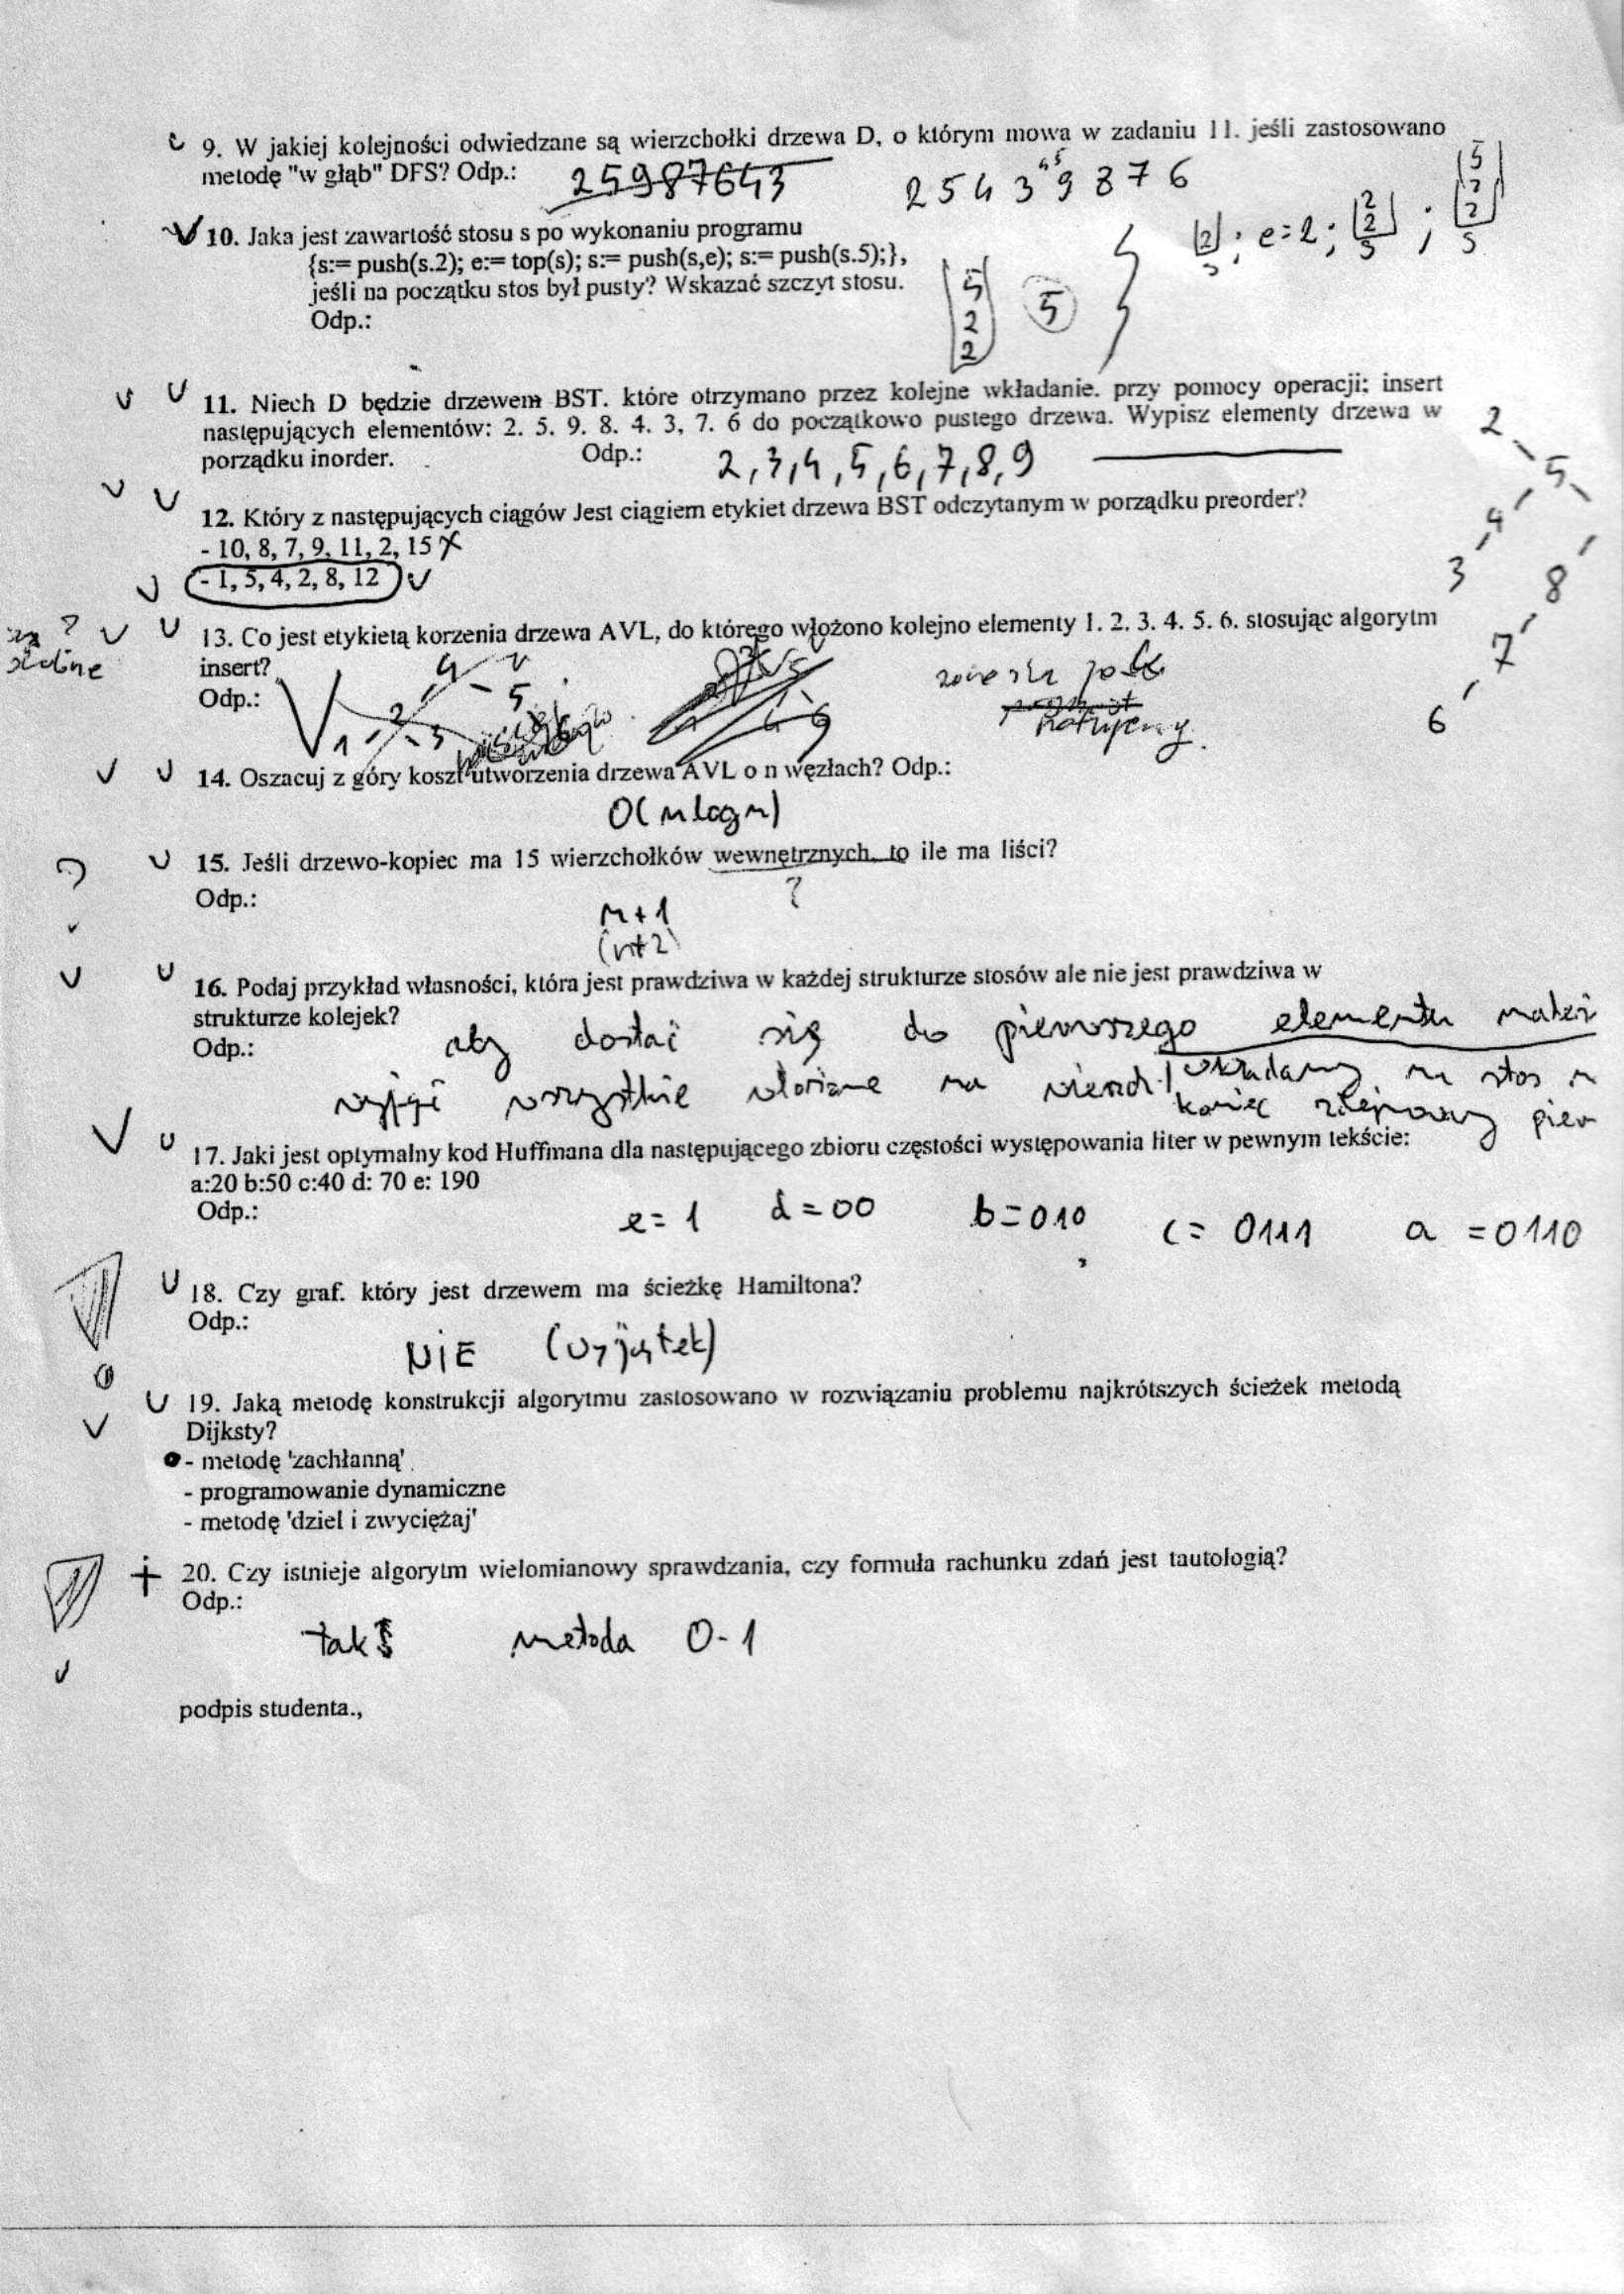 9. W jakiej kolejności odwiedzane są wierzchołki drzewa D, o którym mowa w zadaniu 11. jeśli zastosowano
metodę "w głąb" DFS? Odp.: 25987643 2 5 4 3 9 8 7 6
10. Jaka jest zawartość stosu s po wykonaniu programu
{s:= push(s.2); e:= top(s); s:= push(s,e); s:= push(s.5);},
jeśli na początku stos był pusty? Wskazać szczyt stosu.
Odp.:
5
2
2
5
2 ; e=2 ; 2 2 ; 5 2 2
11. Niech D będzie drzewem BST. które otrzymano przez kolejne wkładanie. przy pomocy operacji: insert
następujących elementów: 2. 5. 9. 8. 4. 3, 7. 6 do początkowo pustego drzewa. Wypisz elementy drzewa w
porządku inorder. Odp.: 2,3,4,5,6,7,8,9
2
5
4
3 8
7
6
12. Który z następujących ciągów Jest ciągiem etykiet drzewa BST odczytanym w porządku preorder?
- 10, 8, 7, 9, 11, 2, 15
- 1, 5, 4, 2, 8, 12
13. Co jest etykietą korzenia drzewa AVL, do którego włożono kolejno elementy 1. 2. 3. 4. 5. 6. stosując algorytm
insert?
Odp.:
4
2 5
1 3
14. Oszacuj z góry koszt utworzenia drzewa AVL o n węzłach? Odp.:
O(n log n)
15. Jeśli drzewo-kopiec ma 15 wierzchołków wewnętrznych, to ile ma liści?
Odp.: ?
n+1
(n+2)
16. Podaj przykład własności, która jest prawdziwa w każdej strukturze stosów ale nie jest prawdziwa w
strukturze kolejek?
Odp.: aby dostać się do pierwszego elementu należy
wyjąć wszystkie na
17. Jaki jest optymalny kod Huffmana dla następującego zbioru częstości występowania liter w pewnym tekście:
a:20 b:50 c:40 d: 70 e: 190
Odp.: e= 1 d=00 b=010 c= 0111 a =0110
18. Czy graf. który jest drzewem ma ścieżkę Hamiltona?
Odp.:
NIE (wyjątek)
19. Jaką metodę konstrukcji algorytmu zastosowano w rozwiązaniu problemu najkrótszych ścieżek metodą
Dijksty?
- metodę 'zachłanną'
- programowanie dynamiczne
- metodę 'dziel i zwyciężaj'
20. Czy istnieje algorytm wielomianowy sprawdzania, czy formuła rachunku zdań jest tautologią?
Odp.:
tak metoda 0-1
podpis studenta.,